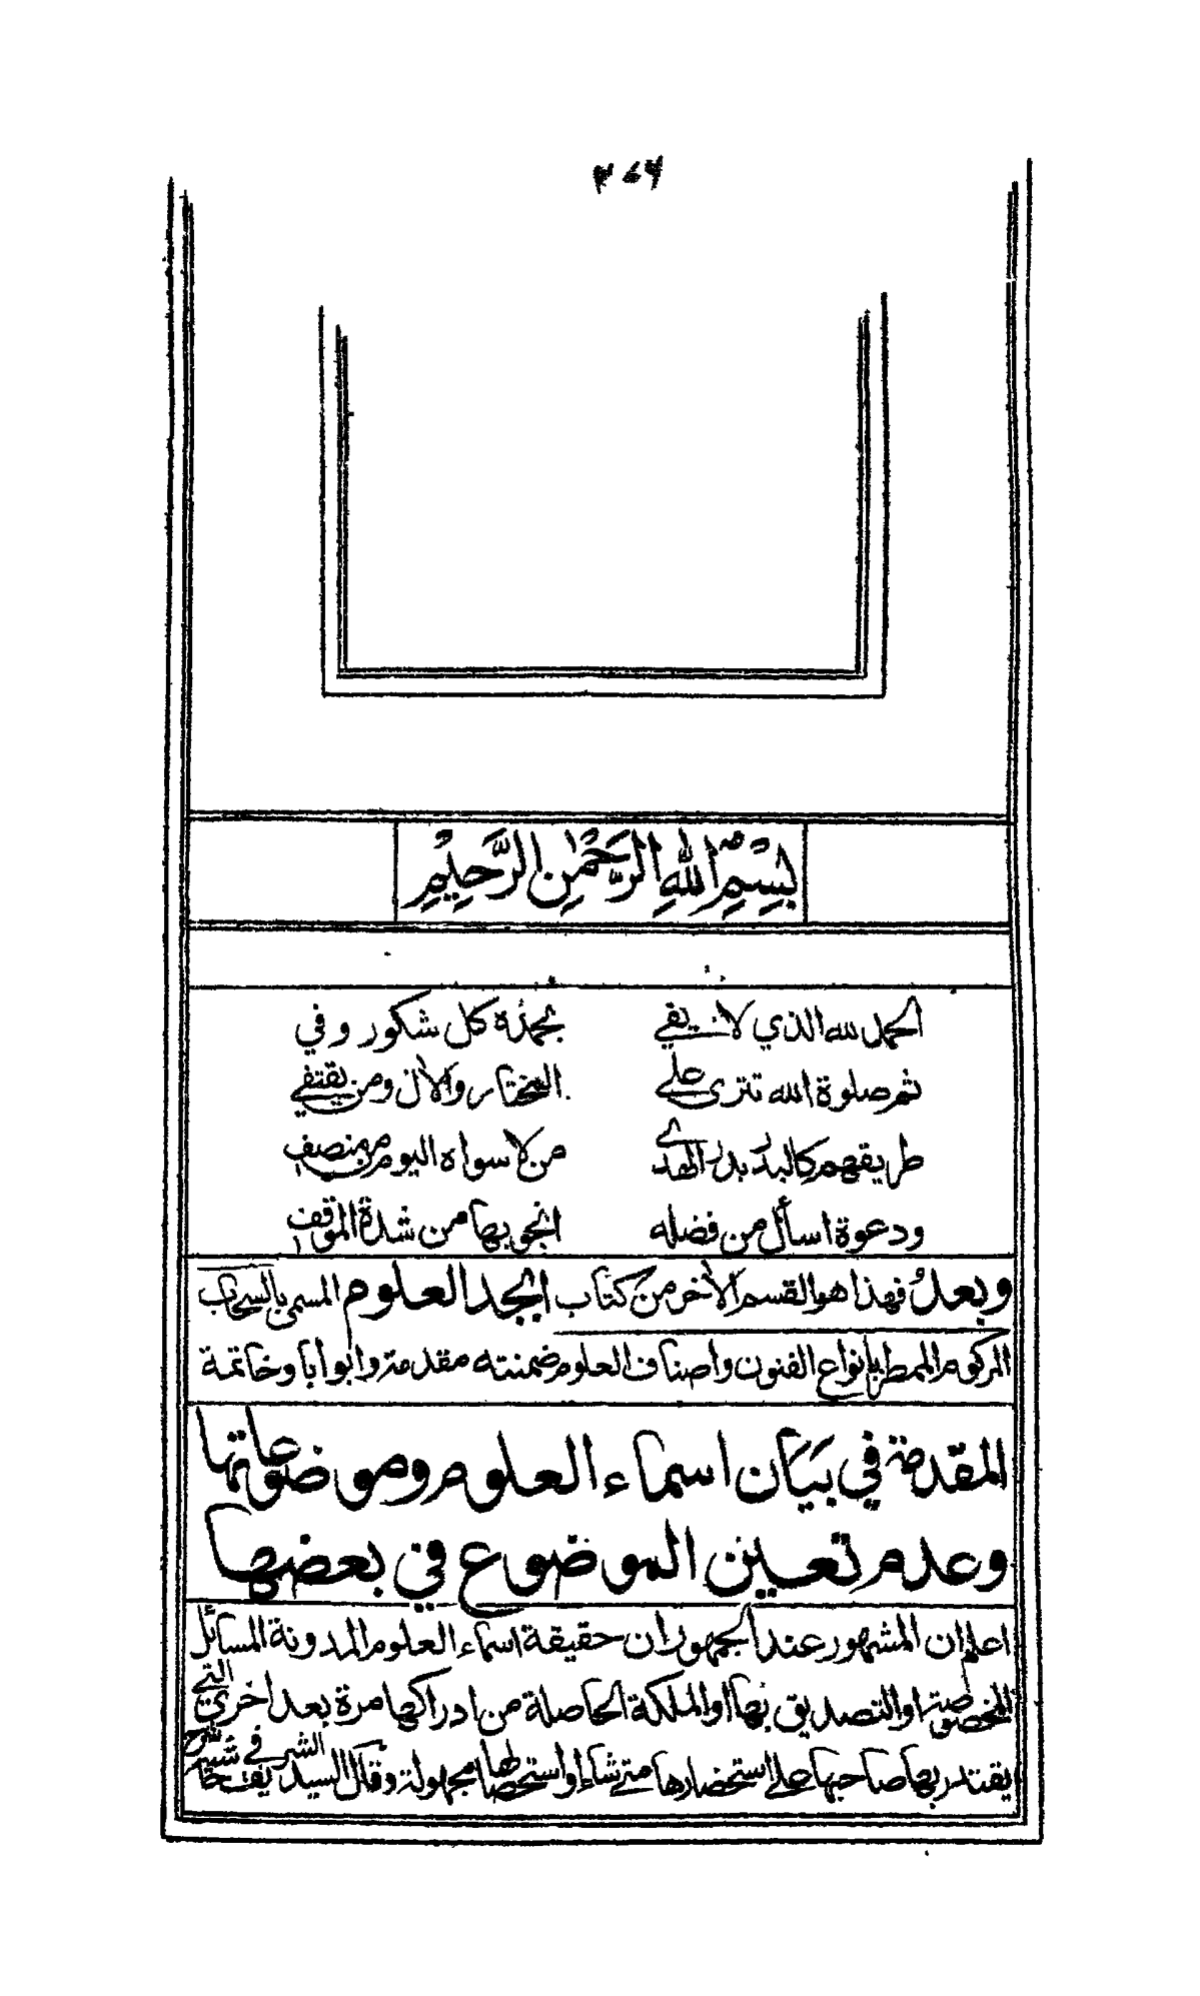 بِسْمِ اللهِ الرَّحْمٰنِ الرَّحِيْمِ
الحمد لله الذي لا يفي بحمده كل شكور وفي
ثم صلوة الله تترى على المختار والآل ومن يقتفي
طريقهم كالبدر بدر الهدى من لا سواه اليوم من منصف
ودعوة اسأل من فضله انجو بها من شدة الموقف
وبعدُ فهذا هو القسم الآخر من كتاب ابجد العلوم المسمى بالسحاب
المركوم الممطر بانواع الفنون واصناف العلوم ضمنته مقدمة وابوابا وخاتمة
المقدمة في بيان اسماء العلوم وموضوعاتها
وعدم تعيين الموضوع في بعضها
اعلم ان المشهور عند الجمهور ان حقيقة اسماء العلوم المدونة المسائل
المخصوصة او التصديق بها او الملكة الحاصلة من ادراكها مرة بعد اخرى التي
يقتدر بها صاحبها على استحضارها متى شاء او استحصالها مجهولة وقال السيد الشريف في حاشية شرح